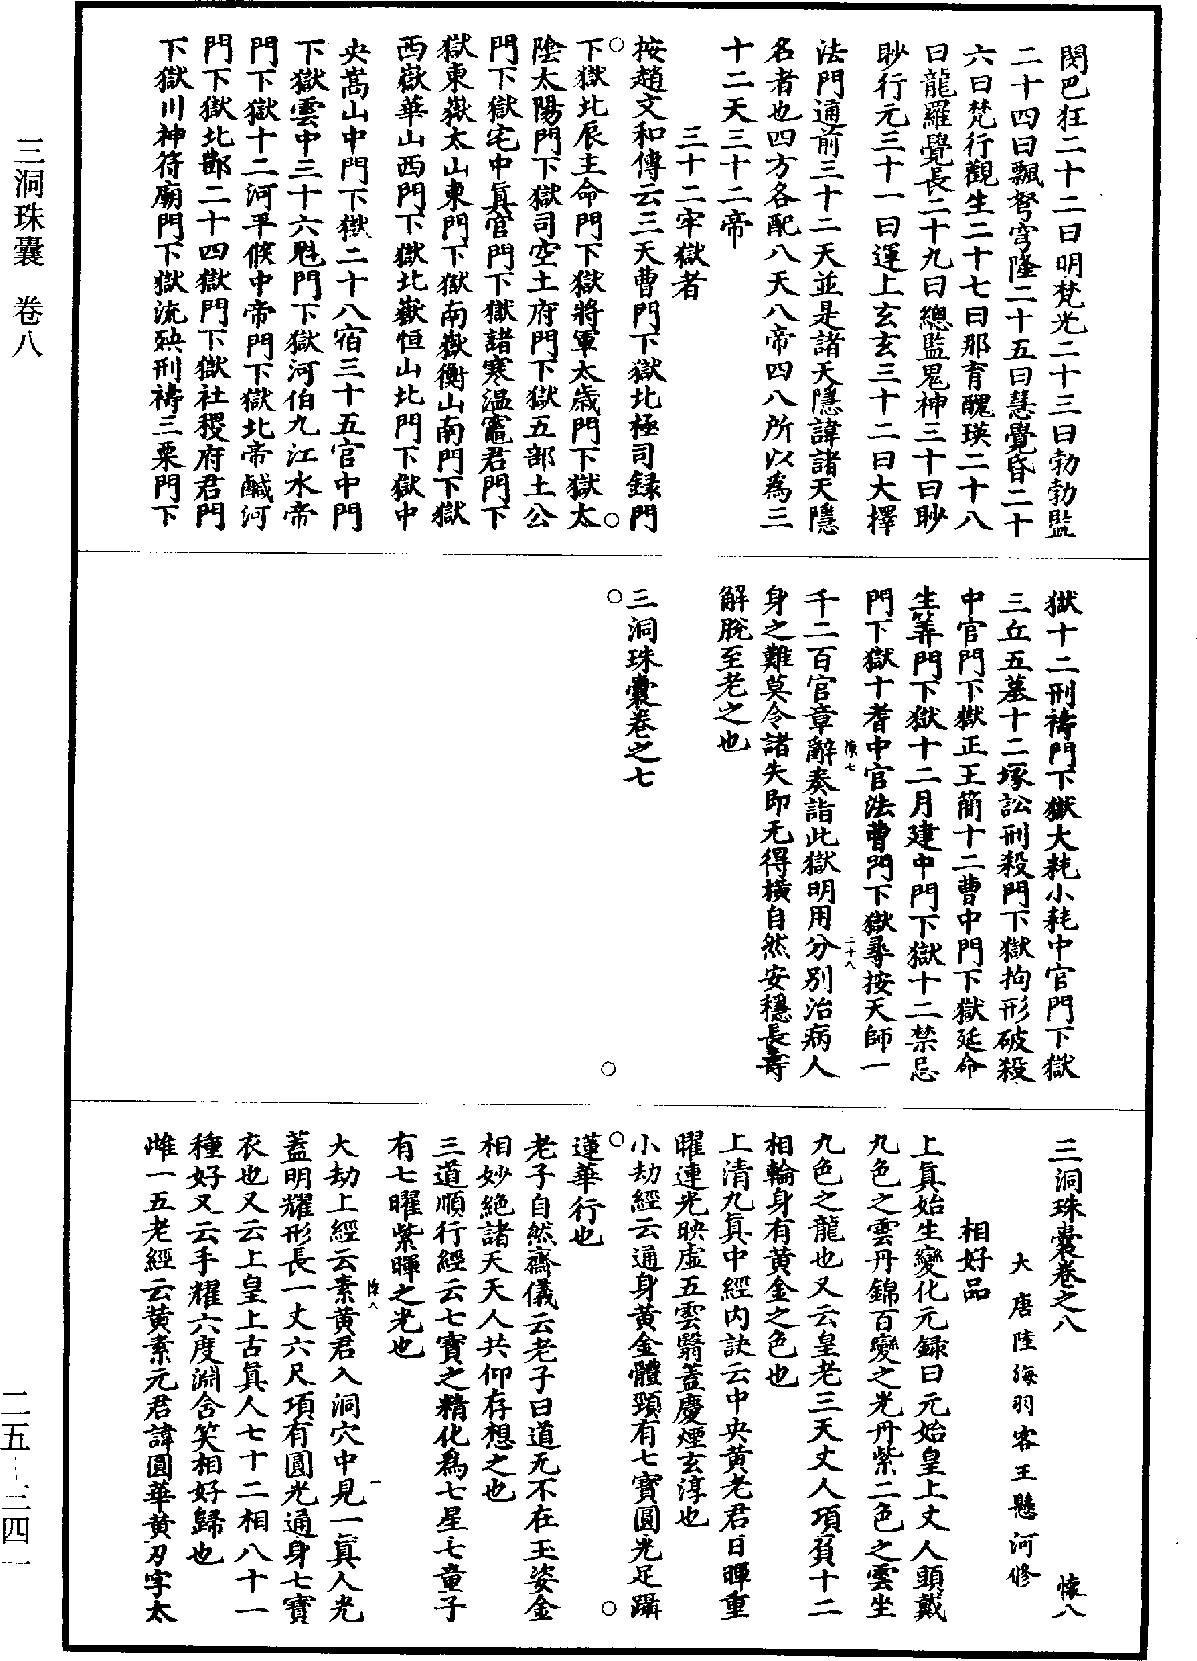 閔巴狂二十二曰明梵光二十三曰勃勃監
二十四曰飄弩穹隆二十五曰慧覺昏二十
六曰梵行觀生二十七曰那育醜瑛二十八
曰龍羅覺長二十九曰總監鬼神三十曰眇
眇行元三十一曰運上玄玄三十二曰大擇
法門通前三十二天並是諸天隱諱諸天隱
名者也四方各配八天八帝四八所以為三
十二天三十二帝
三十二牢獄者
按趙文和傳云三天曹門下獄北極司録門
下獄北辰主命門下獄將軍太歲門下獄太
陰太陽門下獄司空土府門下獄五部土公
門下獄宅中真官門下獄諸寒温竈君門下
獄東嶽太山東門下獄南嶽衡山南門下獄
西嶽華山西門下獄北嶽恒山北門下獄中
央嵩山中門下獄二十八宿三十五官中門
下獄雲中三十六䰢門下獄河伯九江水帝
門下獄十二河平候中帝門下獄北帝鹹河
門下獄北酆二十四獄門下獄社稷府君門
下獄川神符廟門下獄流殃刑禱三粟門下
獄十二刑禱門下獄大耗小耗中官門下獄
三丘五墓十二塚訟刑殺門下獄拘形破殺
中官門下獄正王簡十二曹中門下獄延命
生筭門下獄十二月建中門下獄十二禁忌
門下獄十耆中官法曹門下獄尋按天師一
懷七
二十八
千二百官章辭奏詣此獄明用分別治病人
身之難莫令諸失即无得橫自然安穩長壽
解脫至老之也
三洞珠囊卷之七
三洞珠囊卷之八
懷八
大唐陸海羽客王懸河修
相好品
上真始生變化元録曰元始皇上丈人頭戴
九色之雲丹錦百變之光丹紫二色之雲坐
九色之龍也又云皇老三天丈人項負十二
相輪身有黃金之色也
上清九真中經内訣云中央黃老君日暉重
曜連光映虛五雲翳蓋慶煙玄淳也
小劫經云通身黃金體頸有七寶圓光足躡
蓮華行也
老子自然齋儀云老子曰道无不在玉姿金
相妙絕諸天天人共仰存想之也
三道順行經云七寶之精化為七星七童子
有七曜紫暉之光也
懷八
一
大劫上經云素黃君入洞穴中見一真人光
蓋明耀形長一丈六尺項有圓光通身七寶
衣也又云上皇上古真人七十二相八十一
種好又云手耀六度淵含笑相好歸也
雌一五老經云黃素元君諱圓華黃刃字太
三洞珠囊 卷八
二五-三四一